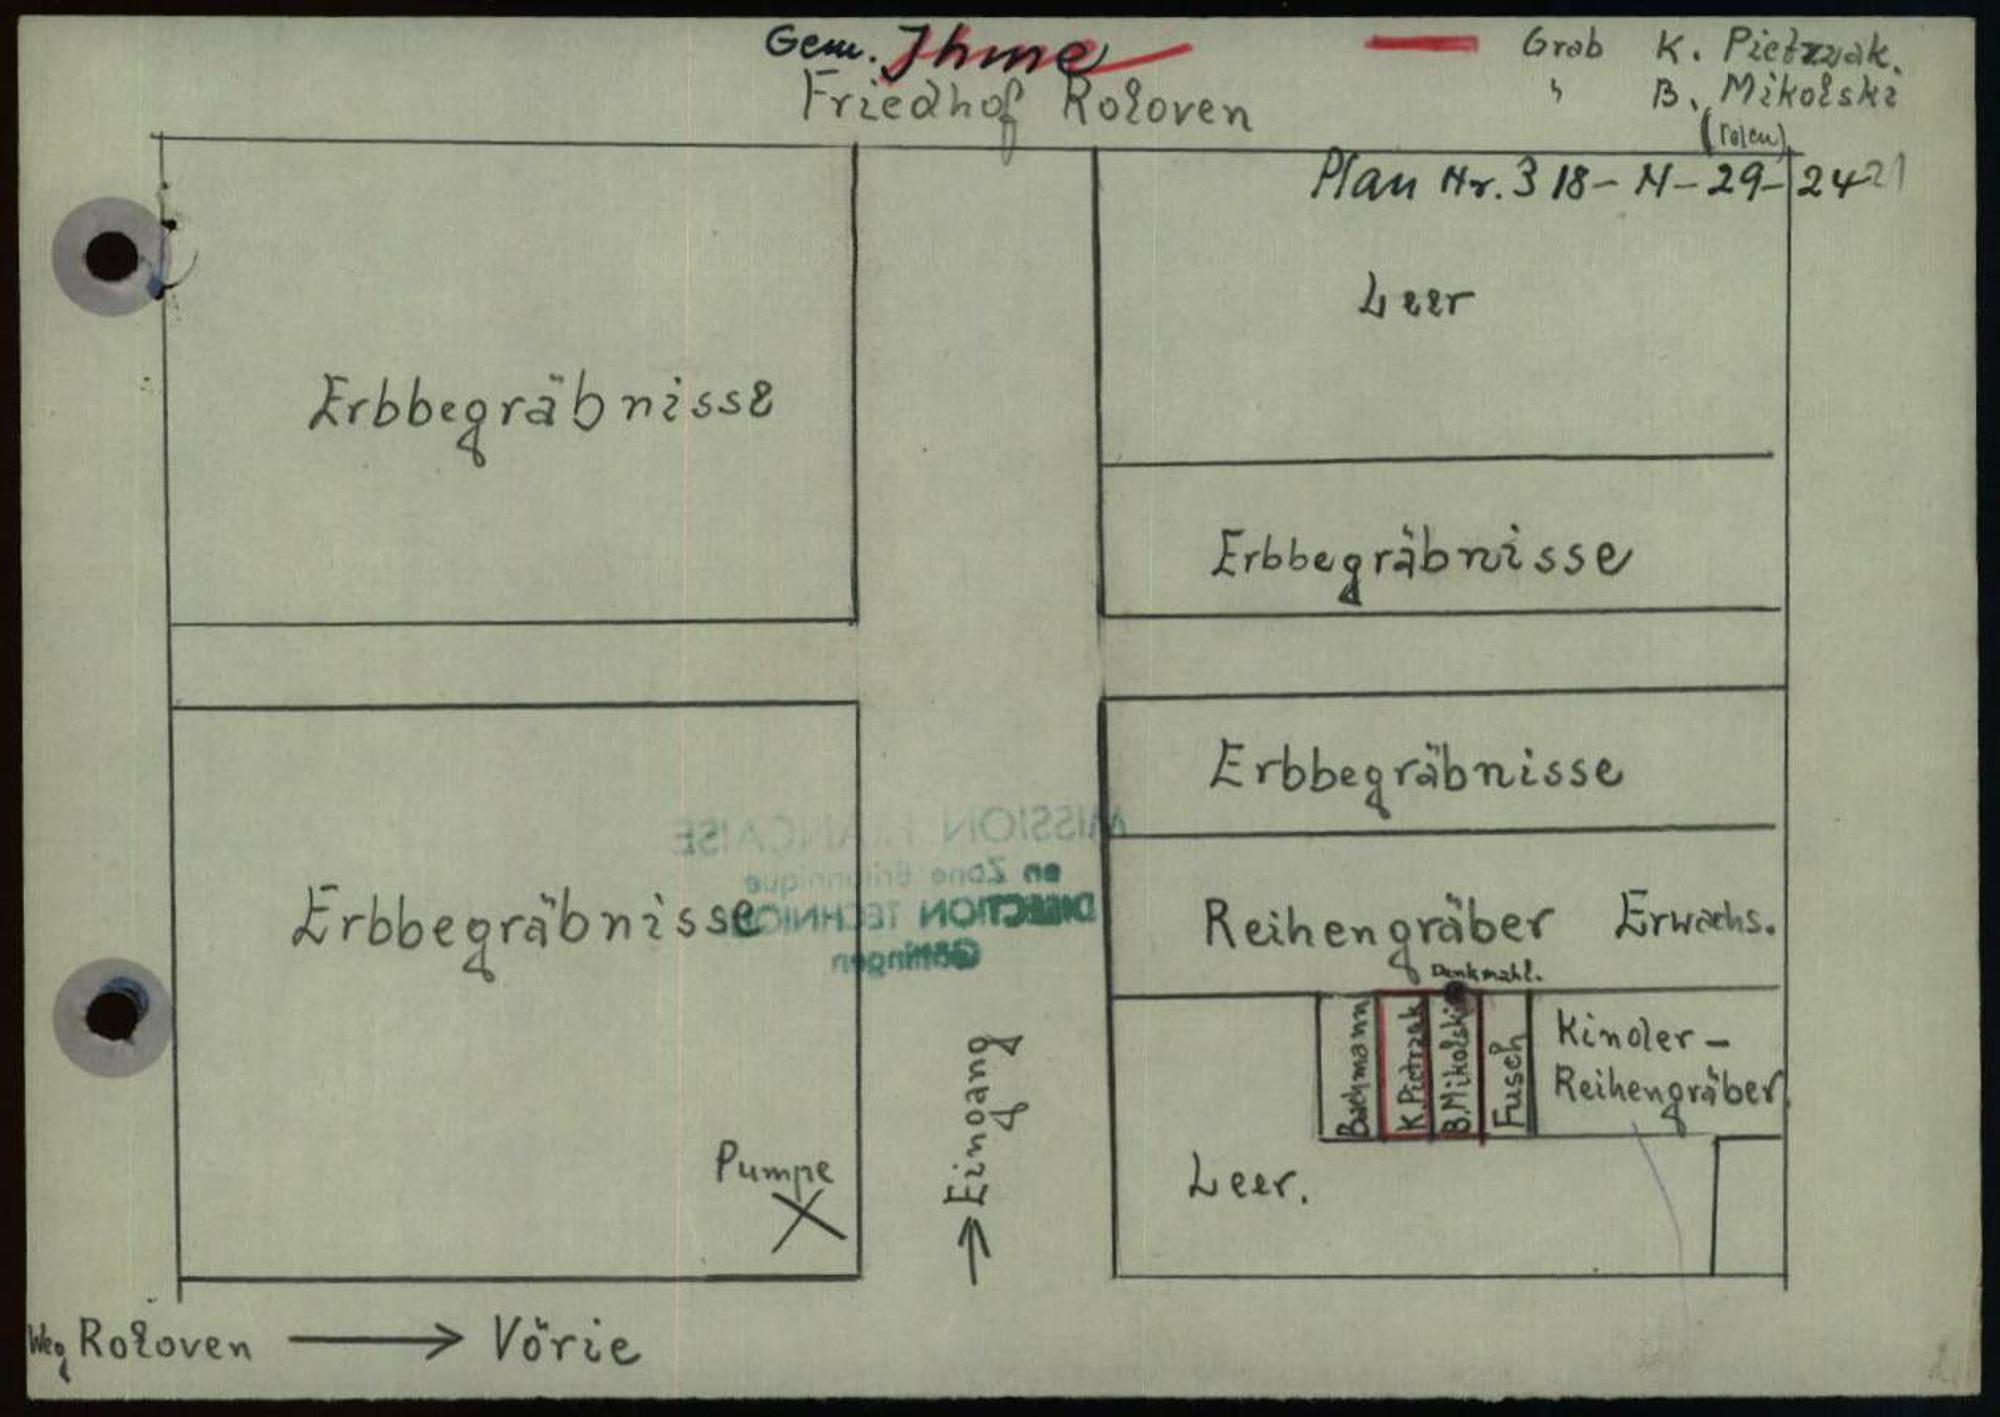 Gem. Ihme
Friedhof Roloven
Grab K. Pietrzak.
" B. Mikolski
(Polen)
Plan Nr. 318-N-29-24
Leer
Erbbegräbnisse
Erbbegräbnisse
Erbbegräbnisse
Erbbegräbnisse
MISSION FRANCAISE
en Zone Britannique
DIRECTION TECHNIQUE
Göttingen
Reihengräber Erwachs.
Denkmahl.
Bachmann
K. Pietrzak
B. Mikolski
Fusch
Kinder-
Reihengräber
Leer.
Pumpe
Eingang
Weg Roloven → Vörie